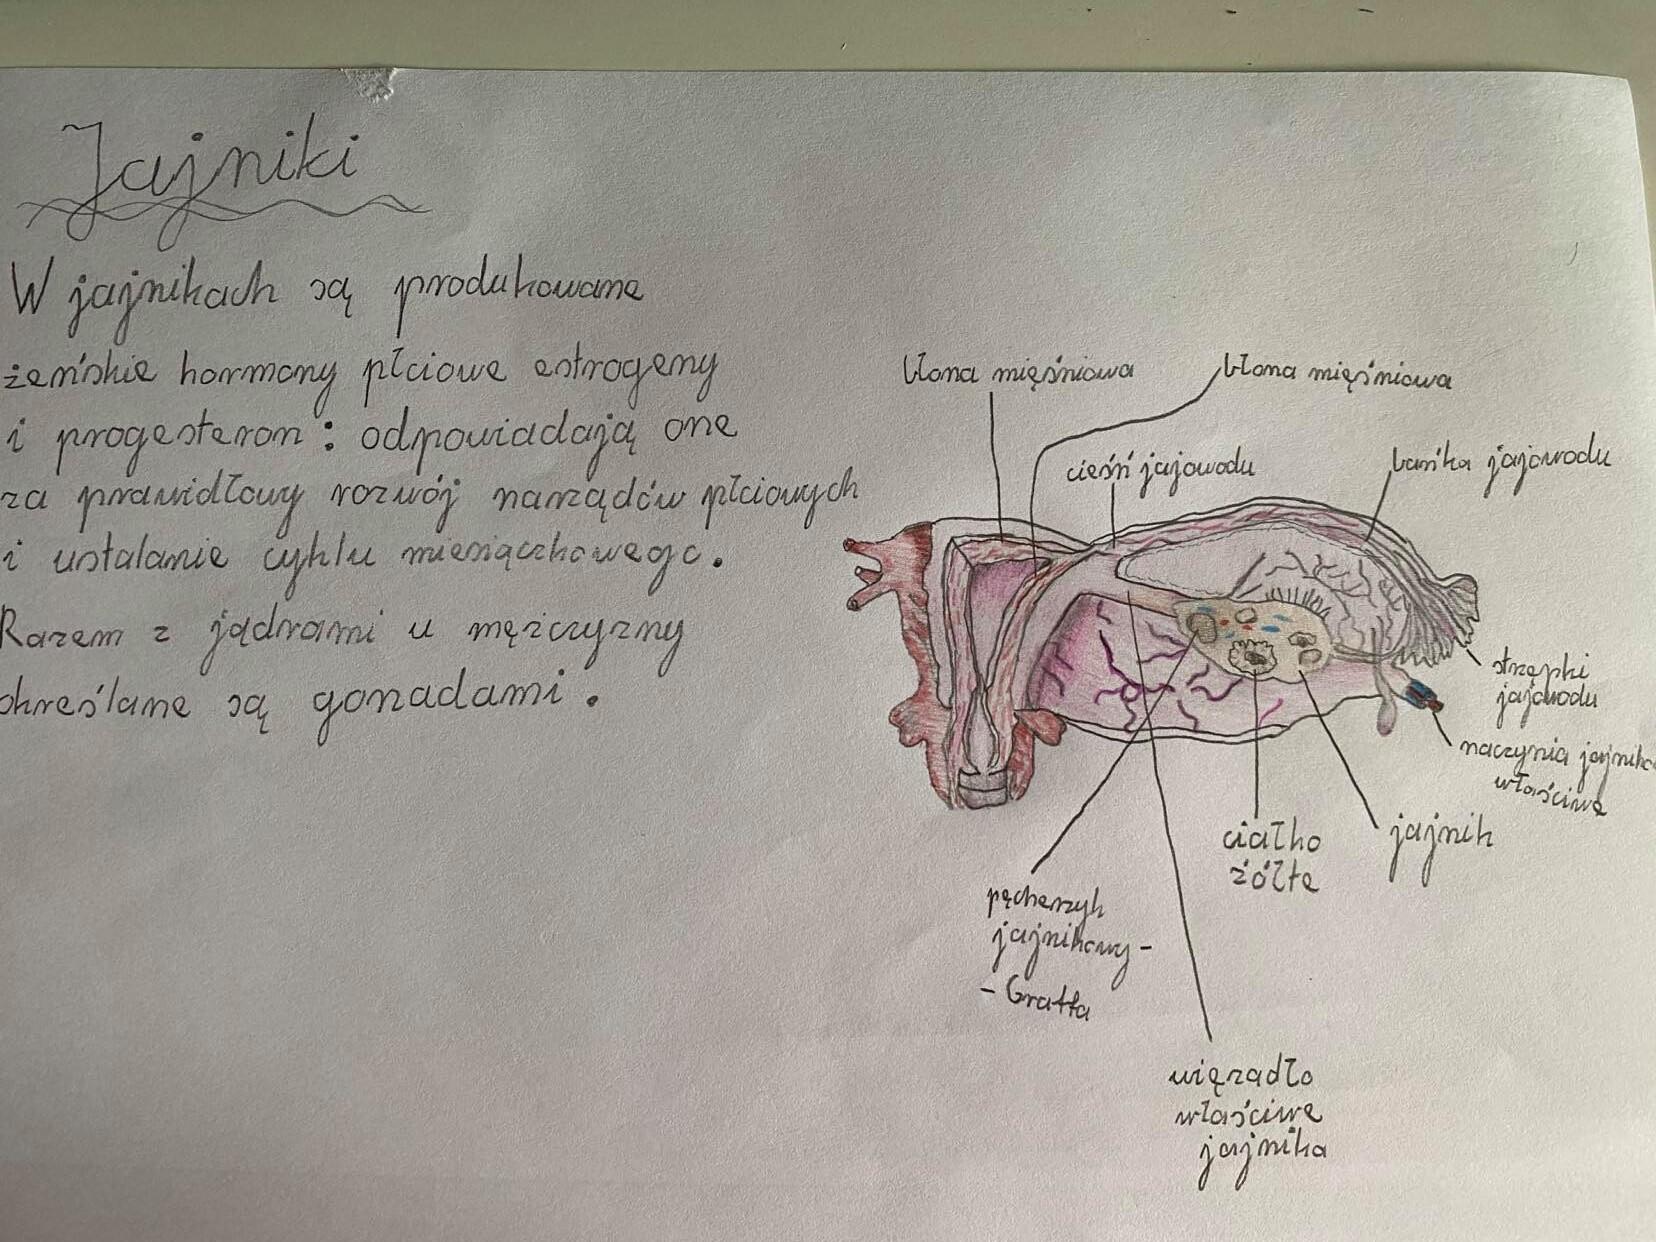 Jajniki
W jajnikach są produkowane
żeńskie hormony płciowe estrogeny
i progesteron: odpowiadają one
za prawidłowy rozwój narządów płciowych
i ustalanie cyklu miesiączkowego.
Razem z jądrami u mężczyzny
określane są gonadami.
błona mięśniowa
błona mięśniowa
cieśń jajowodu
bańka jajowodu
strzępki
jajowodu
naczynia jajnikowe
właściwe
jajnik
ciałko
żółte
pęcherzyk
jajnikowy -
- Graffa
więzadło
właściwe
jajnika